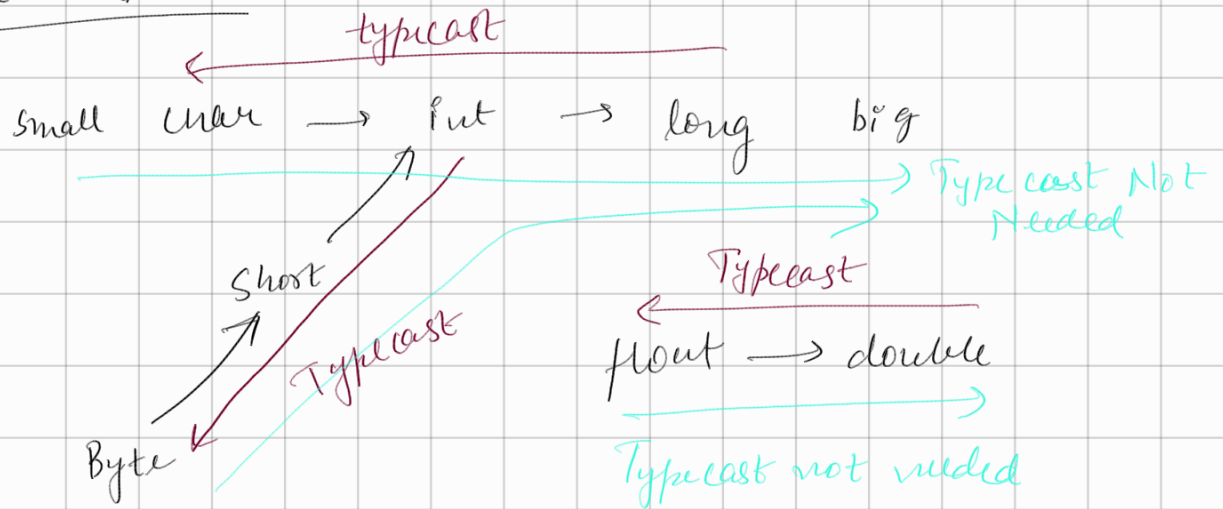 typecast
small char → int → long big
Typecast Not
Needed
Short
Typecast
Typecast
float → double
Byte
Typecast not needed